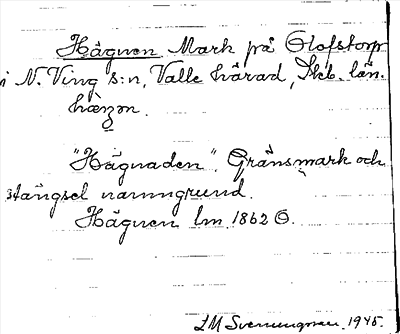 Hägnen Mark på Olofstorp
i N. Ving s:n, Valle härad, Skb. län.
hæŋən.
"Hägnaden". Gränsmark och
stängsel namngrund.
Hägnen lm 1862 O.
LM Svenungsson. 1945.